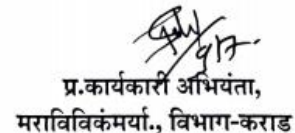 प्र.कार्यकारी अभियंता,
मराविविकंमर्या., विभाग-कराड